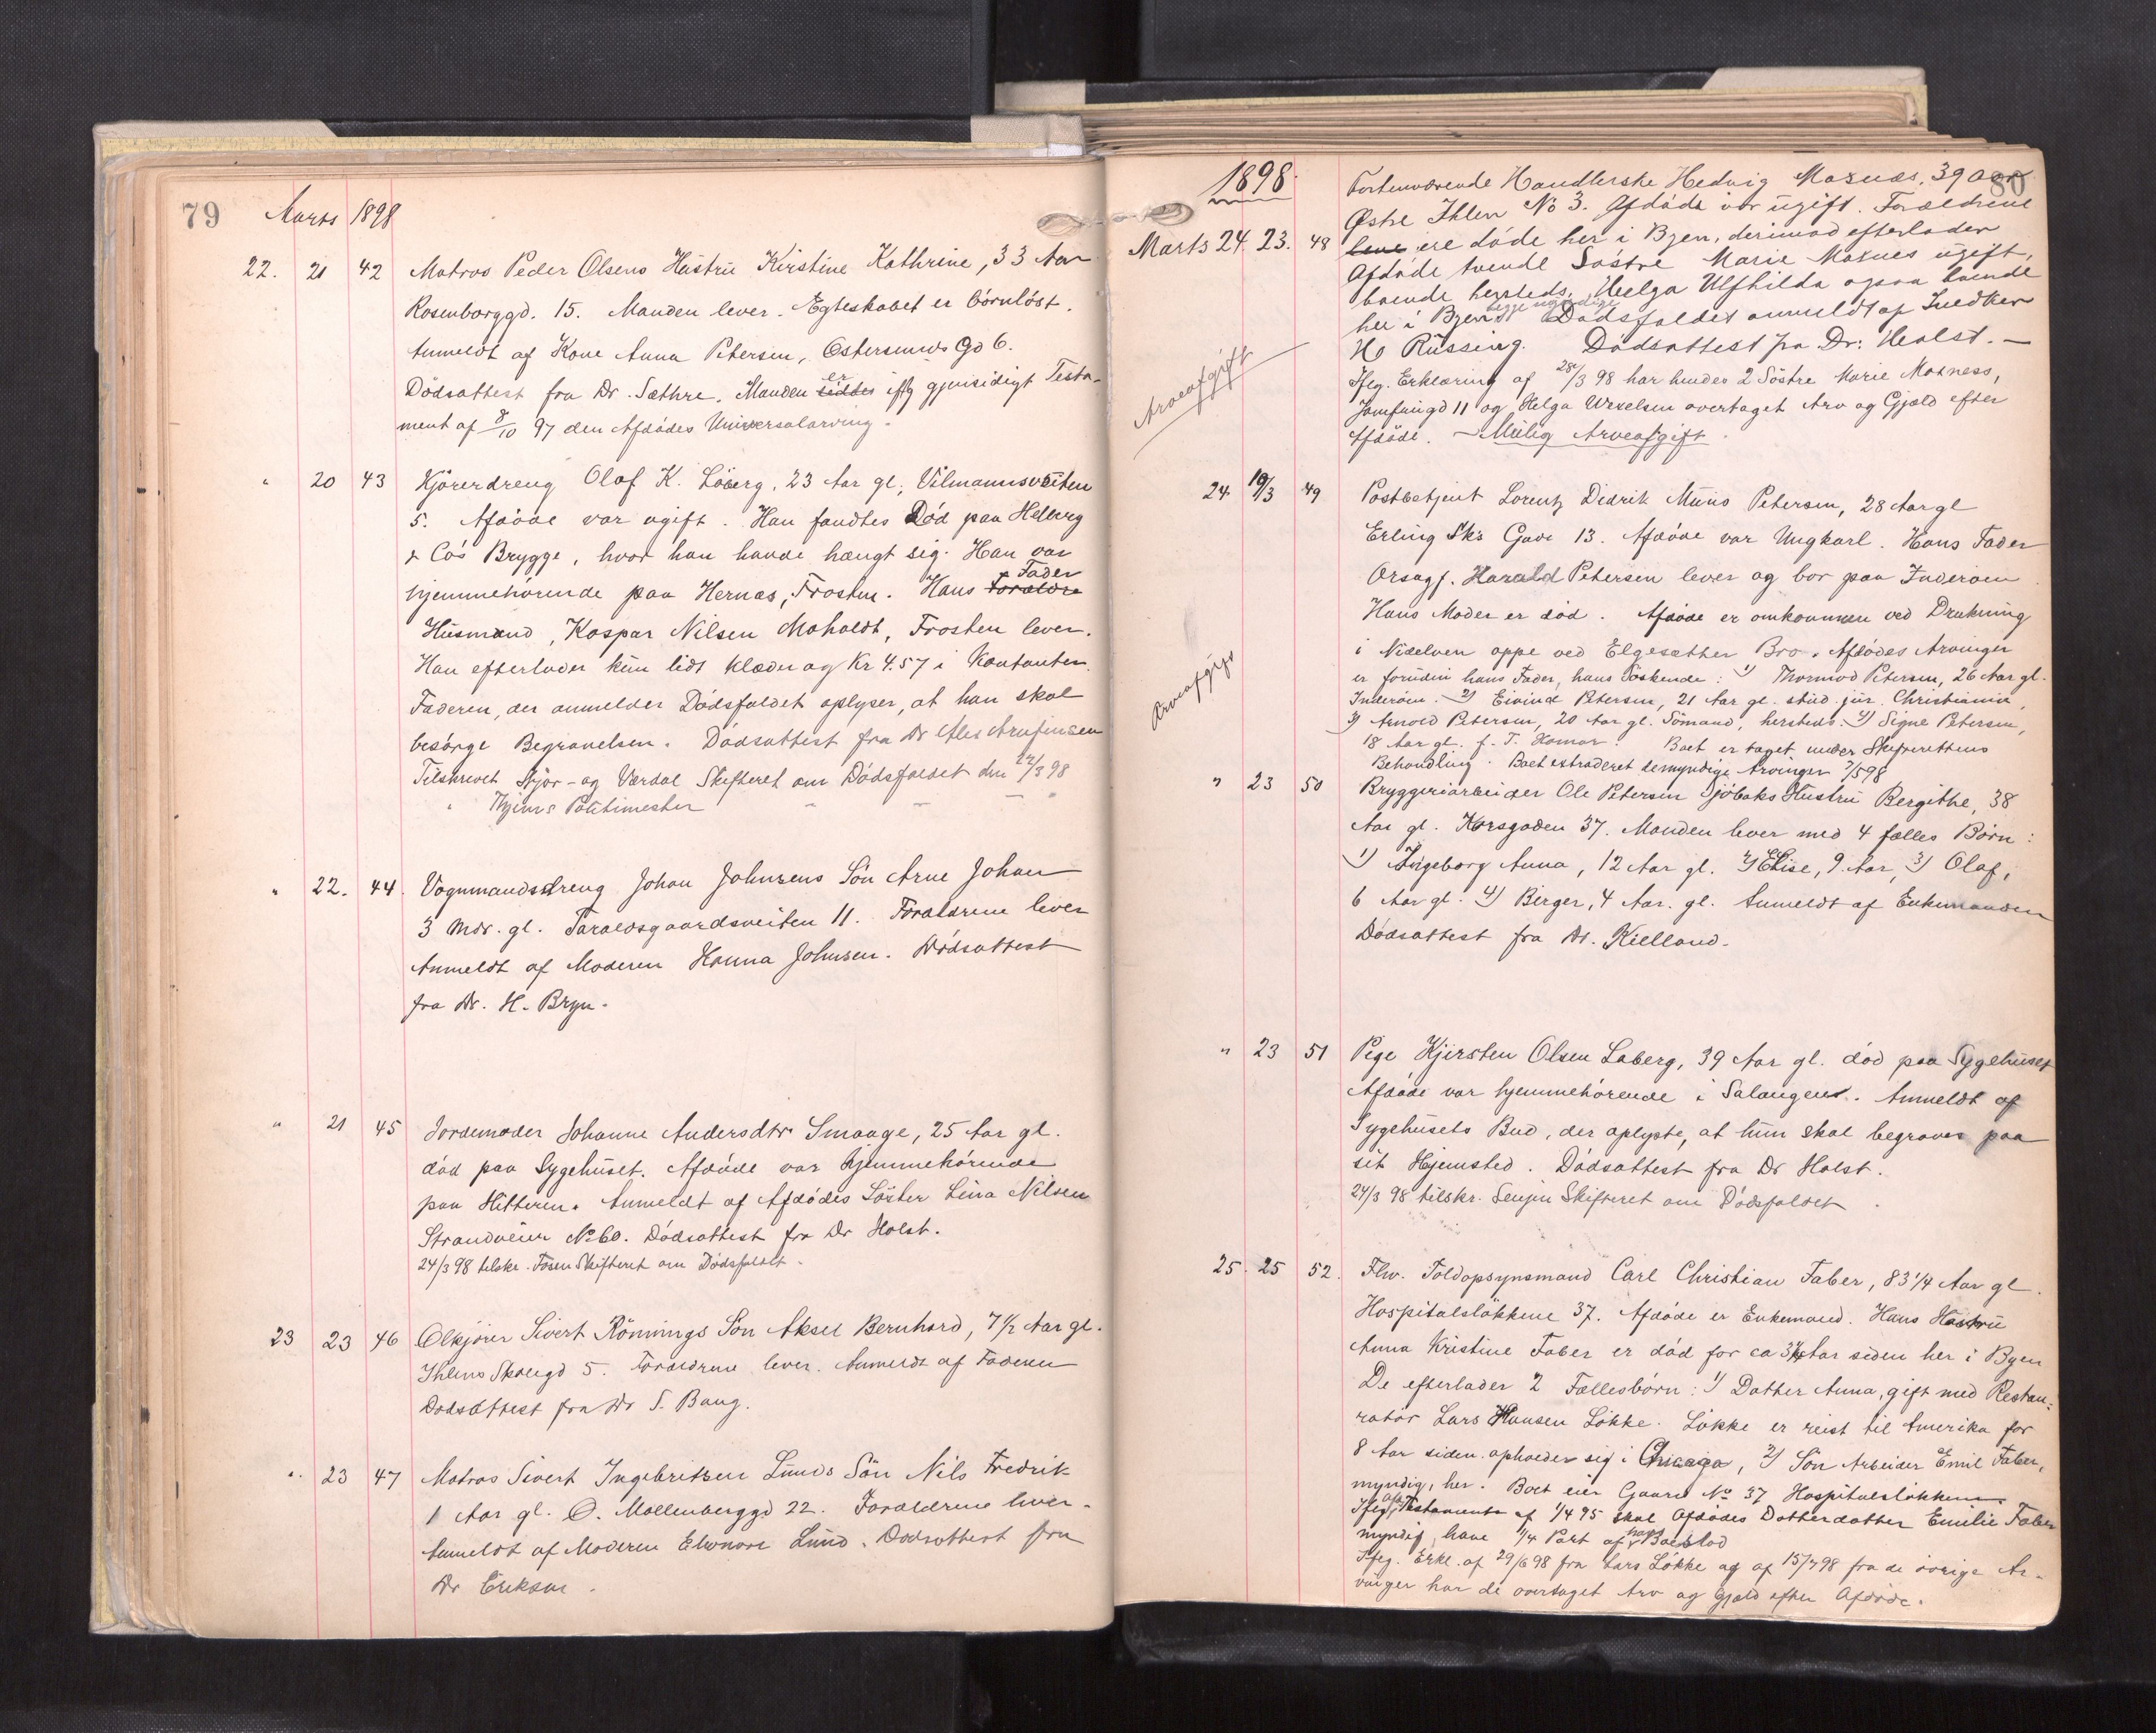 79 Marts 1898
22. 21 42 Matros Peder Olsens Hustru Kirstine Kathrine, 33 Aar
Rosenborggd. 15. Manden lever. Egteskabet er börnlöst.
Anmeldt af Kone Anna Petersen, Östersunds Gd 6.
Dödsattest fra Dr. Sæthre. Manden sidder er iflg gjensidigt Testa-
ment af 8/10 97 den Afdödes Universalarving.
" 20 43 Kjörerdreng Olaf K. Löberg, 23 Aar gl, Vilmannsveiten
5. Afdöde var ugift. Han fandtes Död paa Helberg
& Co's Brygge, hvor han havde hængt sig. Han var
hjemmehörende paa Hernæs, Frosten. Hans Forældre Fader
Husmand, Kaspar Nilsen Moholdt, Frosten lever.
Han efterlader kun lidt klæder og Kr 4.57 i Kontanter.
Faderen, der anmelder Dödsfaldet oplyser, at han skal
besörge Begravelsen. Dödsattest fra Dr Alex Arnfinsen
Tilskrevet Stjör- og Værdal Skifteret om Dödsfaldet den 22/3 98
" Thjems Politimester " " "
" 22. 44. Vognmandsdreng Johan Johnsens Sön Arne Johan
3 Mdr. gl. Taraldsgaardsveiten 11. Forældrene lever
Anmeldt af Moderen Hanna Johnsen. Dödsattest
fra Dr. H. Bryn.
" 21 45 Jordemoder Johanne Andersdtr Smaage, 25 Aar gl.
död paa Sygehuset. Afdöde var hjemmehörende
paa Hitteren. Anmeldt af Afdödes Söster Lina Nilsen
Strandveien No 60. Dödsattest fra Dr Holst.
24/3 98 tilskr. Fosen Skifteret om Dödsfaldet.
23 23 46 Ölkjörer Sivert Rönnings Sön Aksel Bernhard, 7 1/2 Aar gl.
Ihlens Skolegd 5. Forældrene lever. Anmeldt af Faderen
Dödsattest fra Dr S. Bang.
" 23 47 Matros Sivert Ingebritsen Lunds Sön Nils Fredrik
1 Aar gl. Ö. Mollenberggd 22. Forældrene lever.
Anmeldt af Moderen Elenore Lund. Dödsattest fra
Dr Eriksen.
80
1898
Marts 24. 23. 48 Fortenværende Handlerske Hedvig Moxnes, 39 Aar
Östre Ihlen No 3. Afdöde var ugift. Forældrene
leve ere döde her i Byen, derimod efterlader
Afdöde tvende Söstre Marie Moxnes ugift,
boende hersteds, Helga Ulfhilda ogsaa boende
her i Byen begge myndige. Dödsfaldet anmeldt af Snedker
H Rüssing. Dödsattest fra Dr: Holst. —
Ifög. Erklæring af 28/3 98 har hendes 2 Söstre Marie Moxness,
Jomfrugd 11 og Helga Wexelsen overtaget Arv og Gjæld efter
Afdöde. — Mulig Arveafgift.
Arveafgift
24 19/3 49 Postbetjent Lorentz Didrik Müns Petersen, 28 Aar gl
Erling Sks Gade 13. Afdöde var Ungkarl. Hans Fader
Orsagf. Harald Petersen lever og bor paa Inderöen
Hans Moder er död. Afdöde er omkommen ved Drukning
i Nidelven oppe ved Elgesæther Bro. Afdödes Arvinger
er foruden hans Fader, hans Söskende: 1) Thormod Petersen, 26 Aar gl.
Inderöen. 2) Eivind Petersen, 21 Aar gl. stud. jur. Christiania,
3) Arnold Petersen, 20 Aar gl. Sömand, hersteds. 4) Signe Petersen,
18 Aar gl. f. T. Hamar. Boet er taget under Skifterettens
Behandling. Boet extraderet de myndige Arvinger 7/5 98
Arveafgift
" 23 50 Bryggeriarbeider Ole Petersen Sjöbaks Hustru Bergithe, 38
Aar gl. Korsgaden 37. Manden lever med 4 fælles Börn:
1) Ingeborg Anna, 12 Aar gl. 2) Elise, 9 Aar, 3) Olaf,
6 Aar gl. 4) Birger, 4 Aar. gl. Anmeldt af Enkemanden
Dödsattest fra Dr. Kielland.
" 23 51 Pige Kjersten Olsen Laberg, 39 Aar gl. död paa Sygehuset
Afdöde var hjemmehörende i Salangen. Anmeldt af
Sygehusets Bud, der oplyste, at hun skal begraves paa
sit Hjemsted. Dödsattest fra Dr Holst.
24/3 98 tilskr. Senjen Skifteret om Dödsfaldet.
25. 25 52. Flrv. Toldopsynsmand Carl Christian Faber, 83 1/4 Aar gl.
Hospitalslökkene 37. Afdöde er Enkemand. Hans Hustru
Anna Kristine Faber er död for ca 3 1/4 Aar siden her i Byen
De efterlader 2 Fællesbörn: 1) Datter Anna, gift med Restau-
ratör Lars Hansen Lökke. Lökke er reist til Amerika for
8 Aar siden opholder sig i Chicago, 2) Sön Arbeider Emil Faber,
myndig, her. Boet eier Gaard No 37 Hospitalslökken.
Ifög Testamente af 1/4 95 skal Afdödes Datterdatter Emilie Faber
myndig, have 1/4 Part af hans Boeslod
Ifög. Erkl. af 29/6 98 fra Lars Lökke og af 15/7 98 fra de övrige Ar-
vinger har de overtaget Arv og Gjæld efter Afdöde.